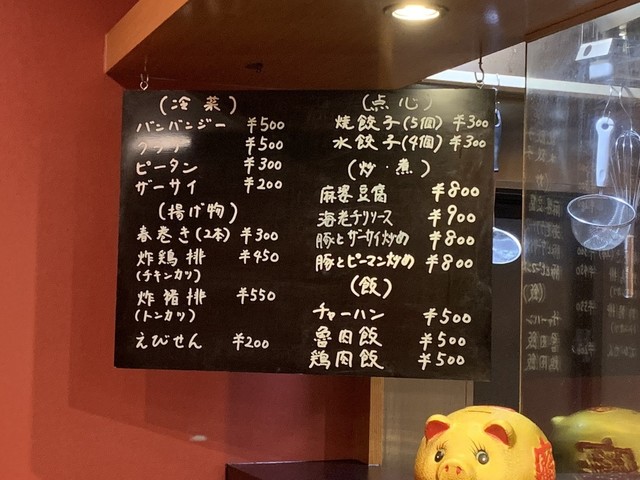 (冷菜)
バンバンジー ¥500
クラゲ ¥500
ピータン ¥300
ザーサイ ¥200
(揚げ物)
春巻き(2本) ¥300
炸鶏排 ¥450
(チキンカツ)
炸猪排 ¥550
(トンカツ)
えびせん ¥200
(点心)
焼餃子(5個) ¥300
水餃子(4個) ¥300
(炒・煮)
麻婆豆腐 ¥800
海老チリソース ¥900
豚とザーサイ炒め ¥800
豚とピーマン炒め ¥800
(飯)
チャーハン ¥500
魯肉飯 ¥500
鶏肉飯 ¥500